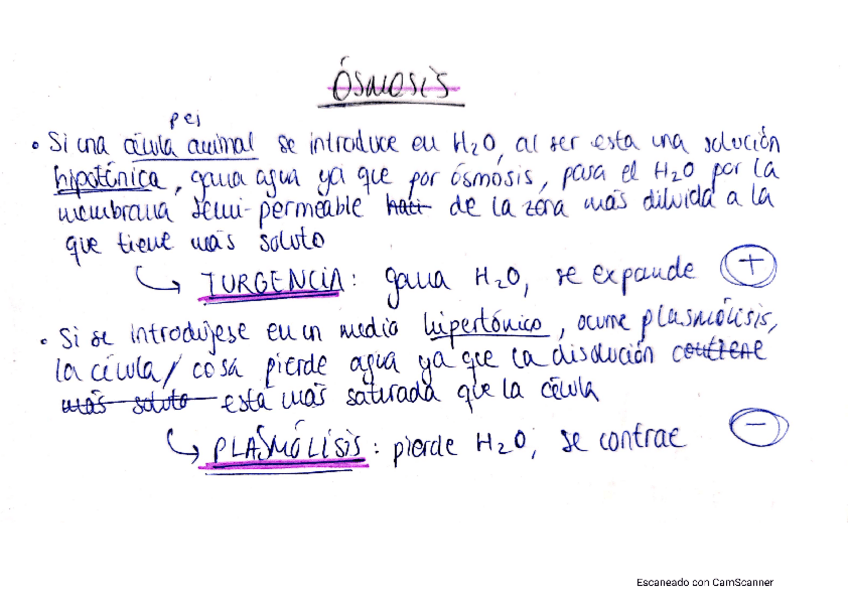 ÓSMOSIS
pej
• Si una célula animal se introduce en H2O, al ser esta una solución
hipotónica, gana agua ya que por ósmosis, pasa el H2O por la
membrana semi-permeable haci de la zona más diluida a la
que tiene más soluto
↳ TURGENCIA: gana H2O, se expande +
• Si se introdujese en un medio hipertónico, ocurre plasmólisis,
la célula/cosa pierde agua ya que la disolución contiene
más soluto está más saturada que la célula
↳ PLASMÓLISIS: pierde H2O, se contrae −
Escaneado con CamScanner